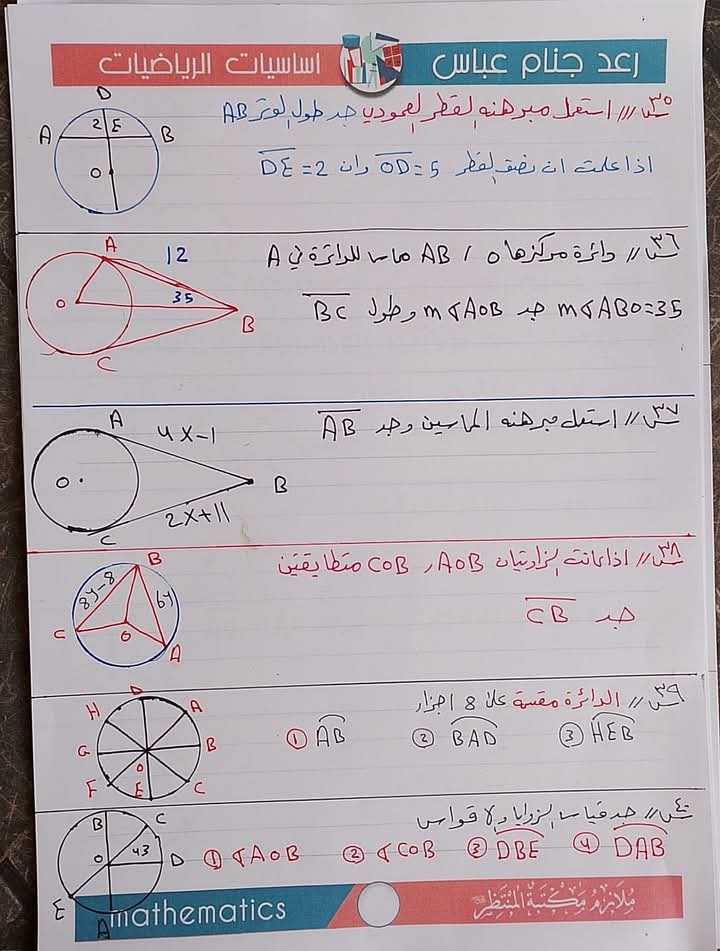 رعد جنام عباس اساسيات الرياضيات
س٣٥// استعمل مبرهنه القطر العمودي جد طول الوتر AB
اذا علمت ان نصف القطر OD=5 وان DE=2
D
A 2 E B
O
س٣٦// دائرة مركزها O / AB مماسا للدائرة في A
m∢ABO=35 جد m∢AOB وطول BC
A 12
O 35 B
C
س٣٧// استعمل مبرهنه المماسين وجد AB
A 4X-1
O B
C 2X+11
س٣٨// اذا كانت الزاويتان AOB , COB متطابقتين
جد CB
B
8y-8 6y
C O A
س٣٩// الدائرة مقسمة على 8 اجزاء
① AB ② BAD ③ HEB
D
H A
G B
O
F E C
س٤٠// جد قياس الزوايا والاقواس
① ∢AOB ② ∢COB ③ DBE ④ DAB
B C
O 43 D
E
A
mathematics ملازم مكتبة المنتظر